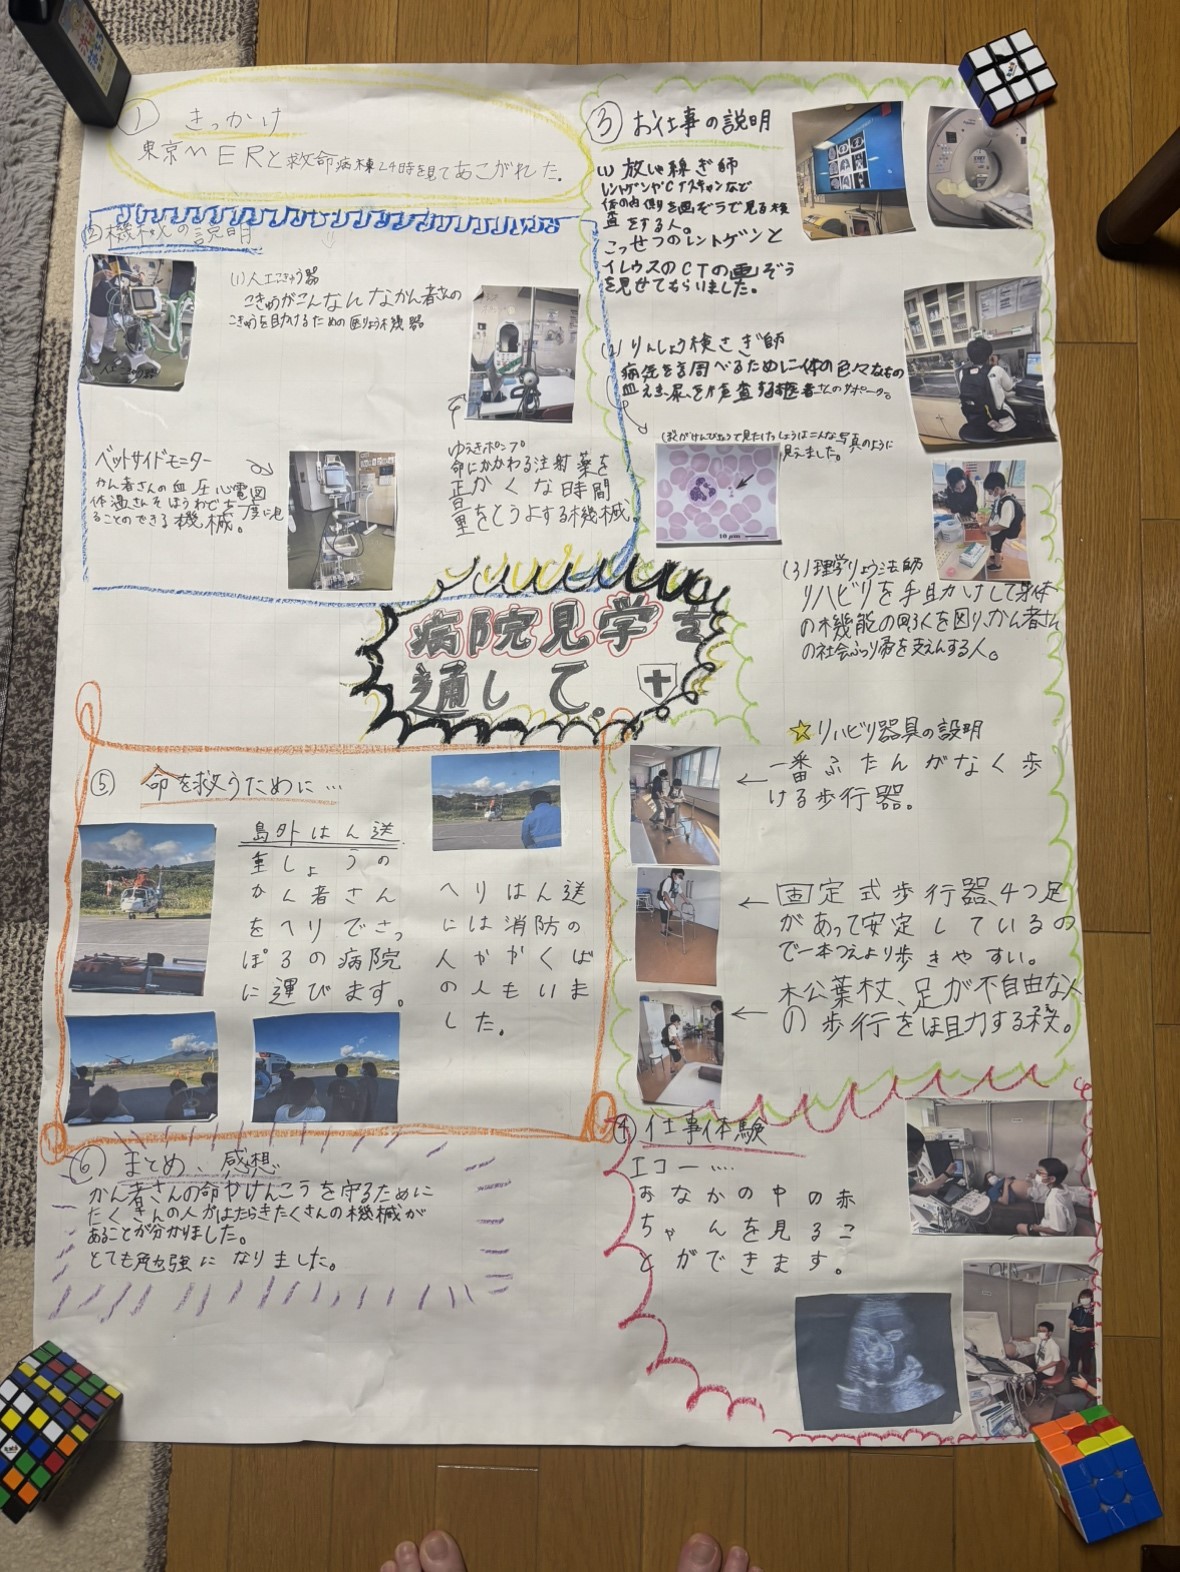 ① きっかけ
東京MERと救命病棟24時を見てあこがれた。
②機械の説明
(1)人工こきゅう器
こきゅうがこんなんなかん者さんの
こきゅうを助けるための医りょう機器
ゆえきポンプ
命にかかわる注射薬を
正かくな時間
量をとうよする機械。
ベットサイドモニター
かん者さんの血圧心電図
体温さんそほうわどを一度に見
ることのできる機械。
③ お仕事の説明
(1) 放しゃ線ぎ師
レントゲンやCTスキャンなど
体の内側を画ぞうで見る検
査をする人。
こっせつのレントゲンと
イレウスのCTの画ぞう
を見せてもらいました。
(2) りんしょう検さぎ師
病気を調べるために体の色々なもの
血えき、尿、を検査する医者さんのサポーター。
見えました。
10 μm
(3)理学りょう法師
リハビリを手助けして身体
の機能の回ふくを図り、かん者さん
の社会ふっ帰を支えんする人。
☆リハビリ器具の説明
←一番ふたんがなく歩
ける歩行器。
←固定式歩行器、4つ足
があって安定しているの
で一本つえより歩きやすい。
←松葉杖、足が不自由な人
の歩行をほ助する杖。
病院見学を
通して。
④ 仕事体験
エコー....
おなかの中の赤
ちゃんを見るこ
とができます。
⑤ 命を救うために…
島外はん送
重しょうの
かん者さん
をヘリでさっ
ぽろの病院
に運びます。
ヘリはん送
には消防の
人がかくば
の人もいま
した。
⑥ まとめ、感想
かん者さんの命やけんこうを守るために
たくさんの人がはたらきたくさんの機械が
あることが分かりました。
とても勉強になりました。